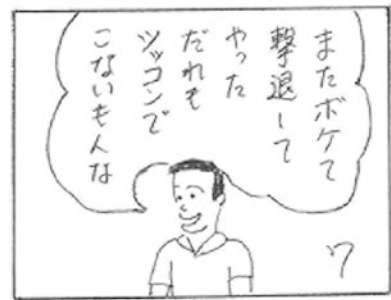 またボケて
撃退して
やった
だれも
ツッコンで
こないもんな
ワ